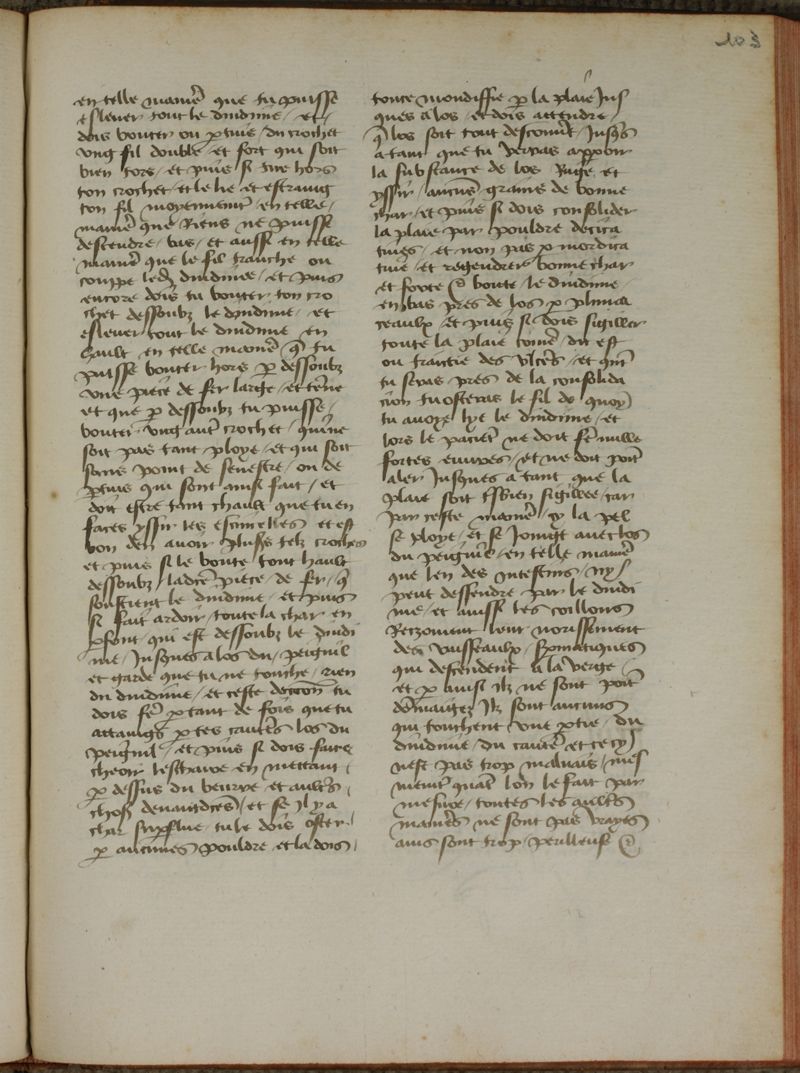 103
en telle manie͛ que tu puisse
eslever tout le dindime / et /
dois bouter ou p̱tuis / du crochet
vng fil double / et fort qui soit
bien tors / et puis si tire hors
ton crochet / et le lie et estraing
ton fil moyennement en telle /
manie͛ que Riens ne puisse
descendre / bas / et aussi en telle
manie͛ que le fil tranche ou
couppe led͛ dindime / et puis
encore dois tu bouter ton cro
chet dessoubz le dindime / et
eslever tout le dindime en
hault en telle manie͛ q̃ tu
puisse bouter hors p̱ dessoubz
vne piece de fer large / et tenue
et que p̱ dessoubz tu puisse /
bouter / vng aut͛ crochet / qui ne
soit pas tant ploye / et qui soit
sans point de fenestre / ou de
p̱tuis qui sont ainsi fait / et
doit estre tant chault que tu en
faces yssir les estincelles et est
bon den avoir plus͛s telz crochez
et puis si le boute tout hault
dessoubz / lad͛ce piece / de fer / q̃
soustient le dindime / et puis
si fait ardoir / toute la char en
p̱font / qui est dessoubz le dindi
me / Jusques a los du / peignil
et garde que tu ne touche / rien
du dindime / et ceste decc̃on tu
dois fe͛ p̱ tant de fois que tu
attaings p̱ tes caute͛s los du
peignil / et puis si dois faire
cheoir lescharre en mettant /
p̱ dessus du beurre / et ault͛s /
choses devantd͛ces / et se Jl y a
char sup̱flue / tu le dois oster /
p̱ aucunes pouldre / et la dois /
toute mondiffie p̱ la plaie Jus
ques a los / et dois attendre /
q̃ los soit tout descouv͛t / Jusq̃s
a tant que tu verras apparoir
la substance de los Ruge / et
yssir / aucus grains de bonne
char / et puis si dois consolider
la plaie par pouldre desica
tives / et non pas p̱ mordica
tive / et regendrer bonne char
et forte / boute / le dindime /
en bas pres de los / p̱ plumaceaulx / et puis si dois sigiller
toute la plaie come͛ / dit est
ou traictie des vlce͛s / et qũt
tu seras pres de la consolida
cion tu osteras le fil de quoy
tu avoye lye le dindime / et
lors le pacient ne doit fe͛ nulle
fortes euvres / et ne doit point
aler Jusques a tant que la
plaie soit t͛sbien sigillee / car
par ceste manie͛ / la pel
se ploye / et se Joingt avec los
du peignil / en telle manie͛
que len des intestins / ny /
peut dessendre par le dindi
me / et aussi les coillons
Recoivent leur norissement
des vaisseaulx / sp̱matiques
qui descendent a la verge
et p̱ ainsi ilz ne sont point
Jlz sont aucuns
qui touchent vne p̱tie / du
dindime / du caute͛ / et ce cy
nest pas trop malvais / mes
mement quãt lon le fait par
mesure / toutes les ault͛s
manie͛s ne sont pas vrayes
ains sont trop / perilleuses